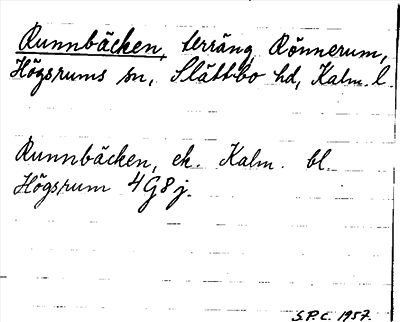 Runnbäcken, terräng Rönnerum,
Högsrums sn, Slättbo hd, Kalm. l.
Runnbäcken, ek. Kalm. bl.
Högsrum 4G8j.
S.P.C. 1957.